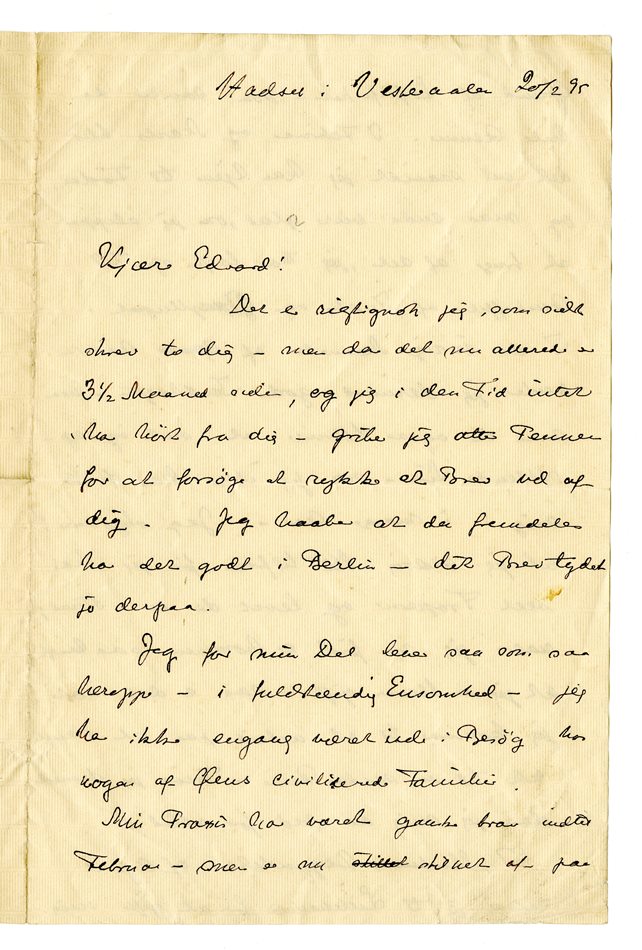 Hadsel i Vesteraalen 20/2 95
Kjære Edvard!
Det er rigtignok jeg, som sidst
skrev to dig – men da det nu allerede er
3½ Maaned siden, og jeg i den Tid intet
har hört fra dig – gribe jeg atter Pennen
for at forsöge at rykke et Brev ud af
dig. Jeg haaber at du fremdeles
har det godt i Berlin – dit Brev tydet
jo derpaa.
Jeg for min Del lever saa som saa
heroppe – i fuldstændig Ensomhed – jeg
har ikke engang været inde i Besög hos
nogen af Øens civiliserede Familier.
Min Praxis har været ganske brav indtil
Februar – men er nu stillet stilnet af paa